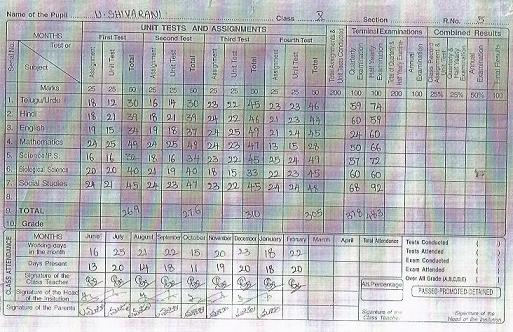 Name of the Pupil U. SHIVARANI Class 8 Section R.No. 5
UNIT TESTS AND ASSIGNMENTS Terminal Examinations Combined Results
MONTHS First Test Second Test Third Test Fourth Test
Serial No. Test or Subject Assignment Unit Test Total Assignment Unit Test Total Assignment Unit Test Total Assignment Unit Test Total
Marks 25 25 50 25 25 50 25 25 50 25 25 50 200 100 100 200 100 25% 25% 50% 100
1. Telugu/Urdu 18 12 30 16 14 30 23 22 45 23 23 46 59 74
2. Hindi 18 21 39 18 21 39 24 22 46 21 23 44 60 59
3. English 19 15 34 19 18 37 24 25 49 21 24 45 24 60
4. Mathematics 24 25 49 24 25 49 24 23 47 13 15 28 50 66
5. Science/P.S. 16 16 32 18 16 34 23 22 45 25 24 49 57 72
6. Biological Science 20 20 40 21 19 40 18 15 33 22 23 45 60 60
7. Social Studies 24 21 45 24 23 47 23 22 45 24 24 48 68 92
8.
9. TOTAL 269 276 310 305 378 483
10. Grade
CLASS ATTENDANCE
MONTHS June July August September October November December January February March April Total Attendance
Working days in the month 16 25 21 22 15 20 23 18 22
Days Present 13 20 14 18 11 19 20 18 20
Signature of the Class Teacher
Signature of the Head of the Institution
Signature of the Parents
Att. Percentage
Tests Conducted
Tests Attended
Exam Conducted
Exam Attended
Over All Grade (A,B,C,D,E)
PASSED-PROMOTED-DETAINED
Signature of the Class Teacher
Signature of the Head of the Institution